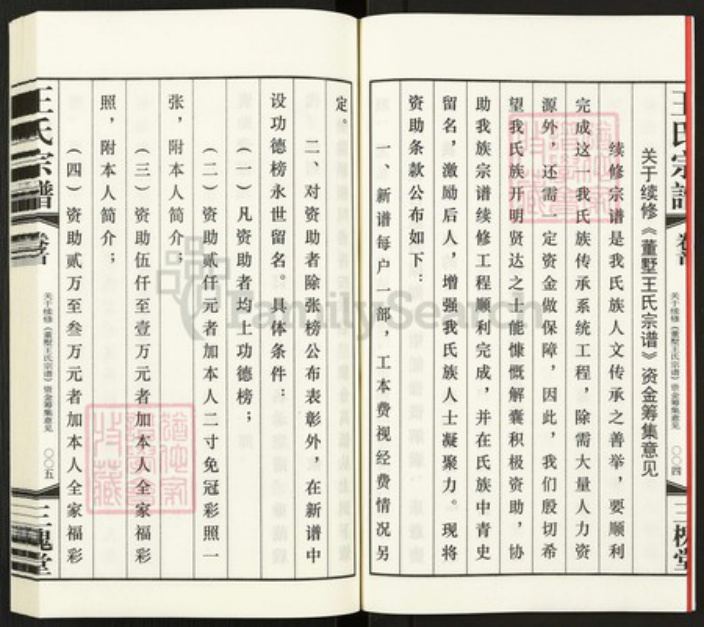 王氏宗谱
卷首
关于续修《董墅王氏宗谱》资金筹集意见
〇〇四
三槐堂
关于续修《董墅王氏宗谱》资金筹集意见
续修宗谱是我氏族人文传承之善举，要顺利
完成这一我氏族传承系统工程，除需大量人力资
源外，还需一定资金做保障，因此，我们殷切希
望我氏族开明贤达之士能慷慨解囊积极资助，协
助我族宗谱续修工程顺利完成，并在氏族中青史
留名，激励后人，增强我氏族人士凝聚力。现将
资助条款公布如下：
一 新谱每户一部，工本费视经费情况另
定。
二、对资助者除张榜公布表彰外，在新谱中
设功德榜永世留名。具体条件：
（一）凡资助者均上功德榜；
（二）资助贰仟元者加本人二寸免冠彩照一
张，附本人简介；
（三）资助伍仟至壹万元者加本人全家福彩
照，附本人简介；
（四）资助贰万至叁万元者加本人全家福彩
王氏宗谱
卷首
关于续修《董墅王氏宗谱》资金筹集意见
〇〇五
三槐堂
FamilySearch